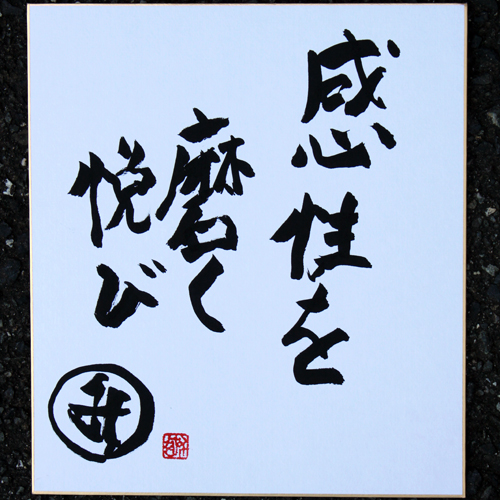 感性を
磨く
悦び